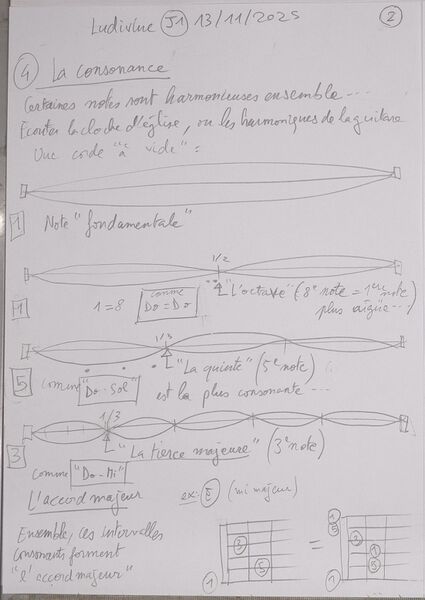 Ludivine J1 13/11/2025 2
4 La consonance
Certaines notes sont harmonieuses ensemble...
Ecouter la cloche d'église, ou les harmoniques de la guitare
Une corde "à vide" :
1 Note "fondamentale"
1/2
"L'octave" (8e note = 1ère note
plus aigüe...)
1 1=8 comme Do=Do
1/3
"La quinte" (5e note)
5 comme "Do-Sol" est la plus consonante...
1/3
"La tierce majeure" (3e note)
3
comme "Do-Mi"
L'accord majeur ex: (mi majeur)
Ensemble, ces intervalles
consonants forment
"l'accord majeur"
3
5
1
=
1
5
3
1
5
1